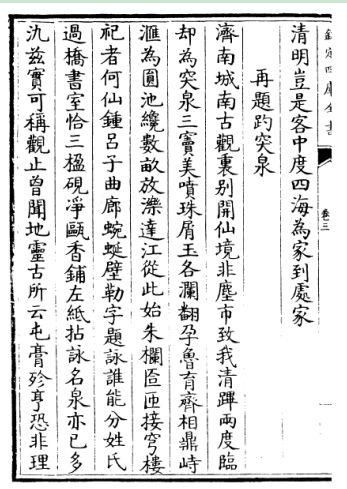 欽定四庫全書
卷三
清明豈是客中度四海為家到處家
再題趵突泉
濟南城南古觀裏别開仙境非塵市致我清蹕兩度臨
却為突泉三竇美噴珠屑玉各瀾翻孕魯育齊相鼎峙
滙為圓池纔數畝放濼達江從此始朱欄匼匝接穹樓
祀者何仙鍾呂子曲廊蜿蜒壁勒字題詠誰能分姓氏
過橋書室恰三楹硯凈甌香鋪左紙拈詠名泉亦已多
況兹實可稱觀止曾聞地靈古所云屯膏殄亨恐非理